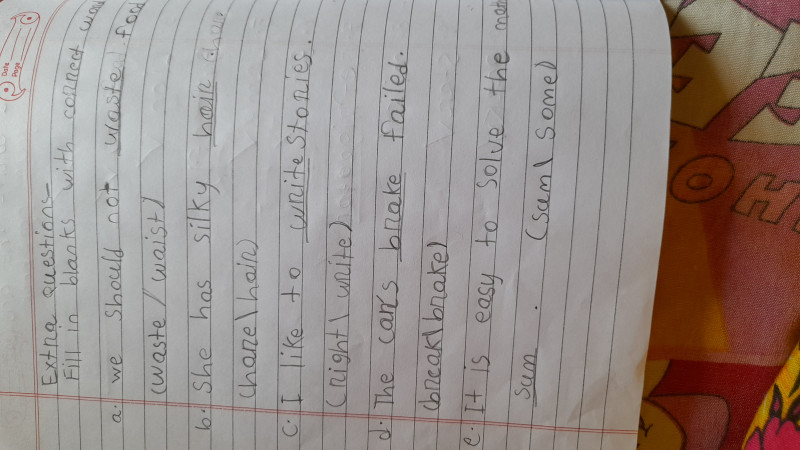 Date
Page
Extra questions
Fill in blanks with correct
a. we should not waste
(waste / waist)
b. She has silky hair
(hare \ hair)
c. I like to write stories.
(right \ write)
d. The car's brake failed.
(break \ brake)
e. It is easy to solve the
sum . (sum \ some)